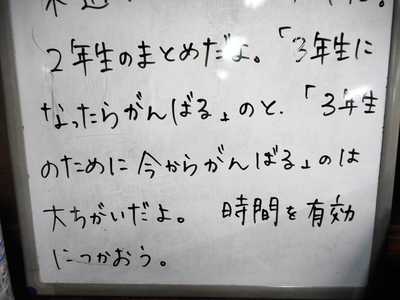 ２年生のまとめだよ。「３年生に
なったらがんばる」のと、「３年生
のために今からがんばる」のは
大ちがいだよ。 時間を有効
につかおう。